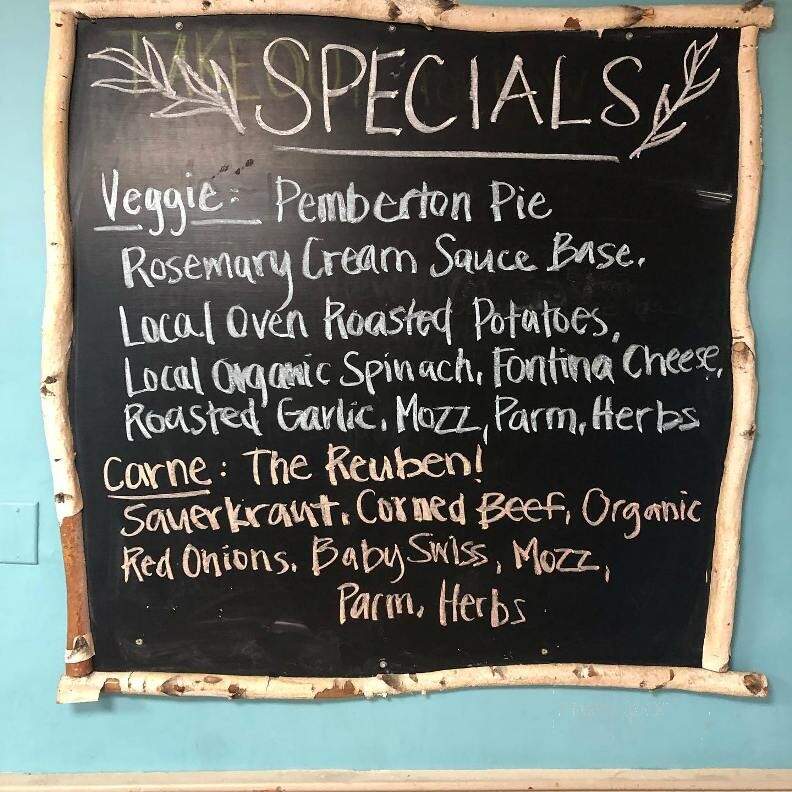 SPECIALS
Veggie: Pemberton Pie
Rosemary Cream Sauce Base,
Local Oven Roasted Potatoes,
Local Organic Spinach, Fontina Cheese,
Roasted Garlic, Mozz, Parm, Herbs
Carne: The Reuben!
Sauerkraut, Corned Beef, Organic
Red Onions, Baby Swiss, Mozz,
Parm, Herbs